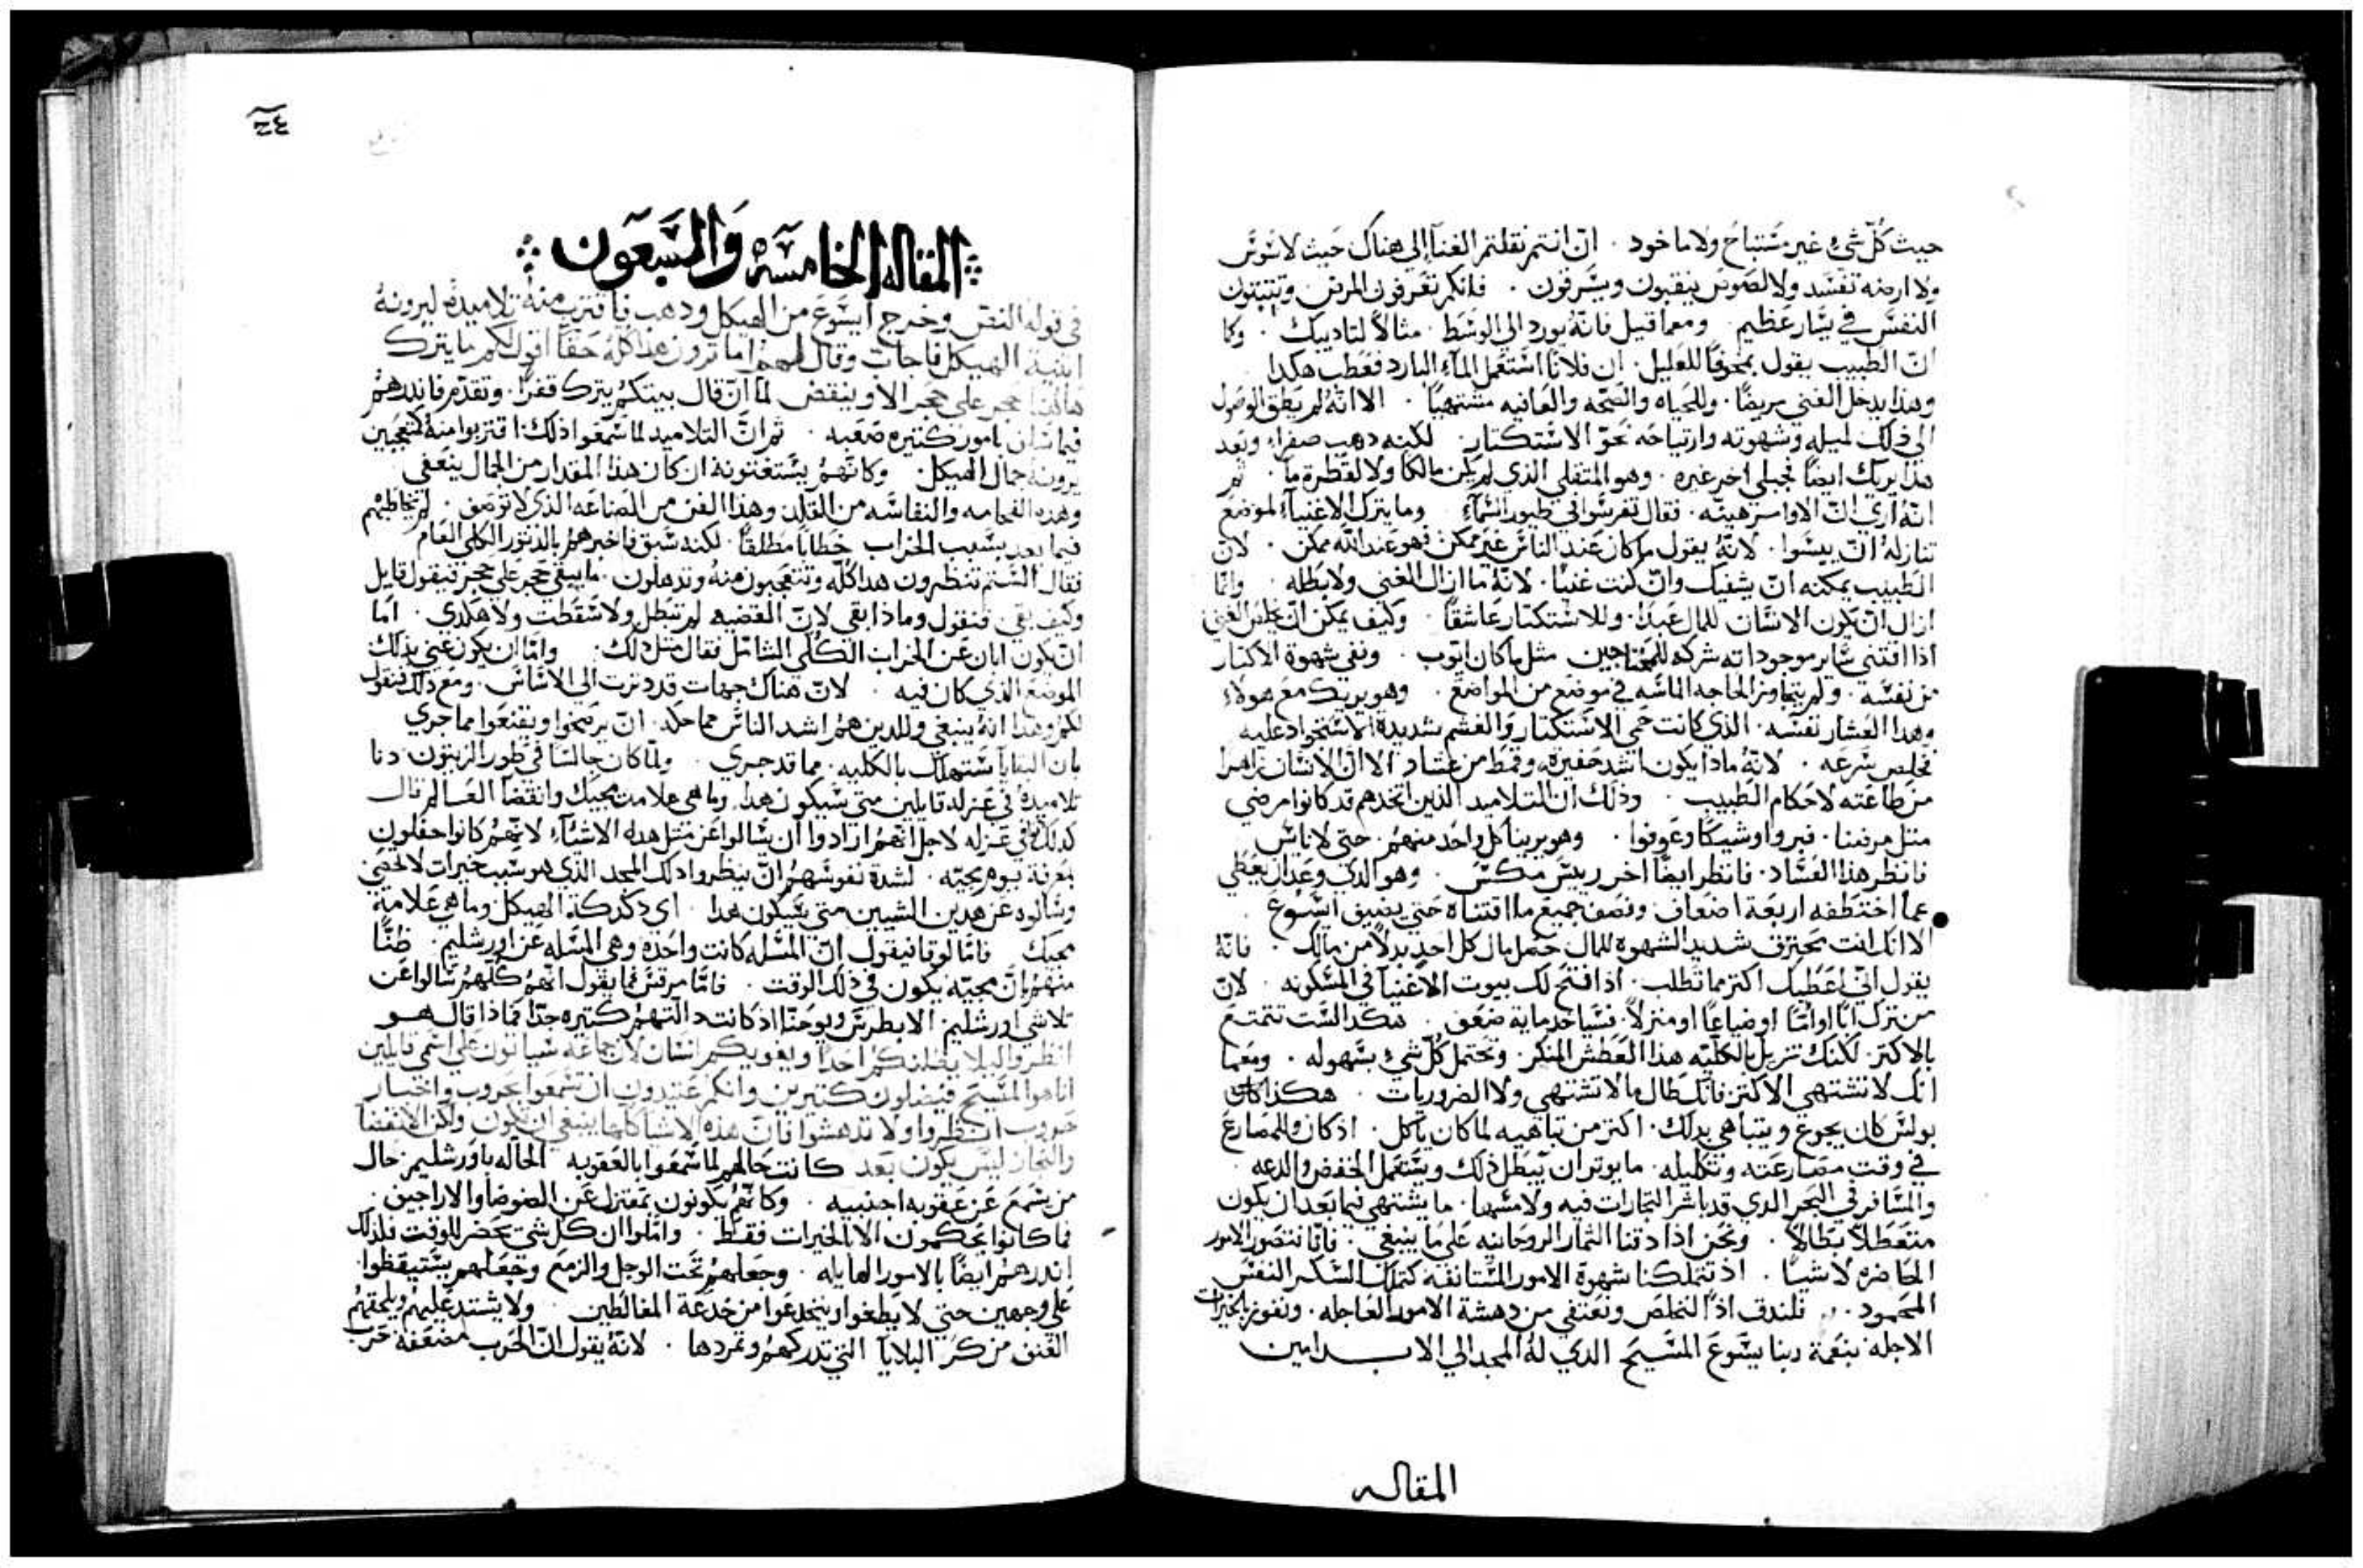 حيث كُلّ شيءٍ غير مستباحَ ولا ماخود . انّ انتم نقلتم الغنآ إلي هناك حَيث لا سُوسَ
ولا ارضه تفسَد ولا لصَوصَ ينقبون ويسَرقون . فانكم تغرفون المرض وتثبتون
النفسَ في يسَار عَظيم . ومعما قيل فانهّ يورد الي الوسَط . مثالاً لتاديبك . وكا
انّ الطَبيب يقول مخوفاً للعَليل . ان فلاناً استَعمَل المآء البارد فعَطب هكدا
وهذا يدخل الغني مريضاً . وللحَياه والصَحّه والعَافيه مشتهيّاً . الا انّهُ لم يَطق الوصَول
الي ذلك لميله وشهوته وارتياحَه نحَوّ الاستَكتار . لكنه دهب صفراء وبَعد
هذا يريك ايضاً انجيلي اخر غيره . وهو المتقلي الذي لم يكن مالكا ولا لقَطرة مآ . ثم
انه اري انّ الاواسر هينّه . فقال تفرسَوا في طيور السَمآء وما يترك الاغنيآء لموضَع
تنازلهُ انّ ييسَوا . لانّهُ يقول ما كان عَند الناسَ غير ممكن فهو عَند الله ممكن . لانّ
الطَبيب يمكنه انّ يشفيك وانّ كنت غنيّاً . لانهّ ما ازال الغني ولا بَطله . وانّما
ازال ان يكون الانسَان للمال عَبداً . وللاستَكتار عَاشقاً . وكيف يمكن انّ يخلص الغني
اذا اقتني سَاير موجوداته شركه للمُحتاجين مثل ما كان ايّوب . ونفي شهوة الاكتار
من نفسَه . ولم يتجاوز الحاجه الماسَه في موضَع من المواضَع . وهو يريك مع هولاءِ
وهدا العَشار نفسَه . الذي كانت حَمي الاستَكتار والغشم شديدة الاستَحواد عليه
تخلص سَرعَه . لانّهُ مادا يكون اشد حَقيرة وقحَط من عشار . الا انّ الانسَان زاهرا
من طاعَته لاحَكام الطَبيب . وذلك ان التلاميد الذين اتخدهم قد كانوا مرضي
مثل مرضنا . فبروا وشيكاً وعَوفوا . وهو يرينا كل واحَد منهم . حتي لا ناسَ
فانظر هذا العَشاد . فانظر ايضاً اخر رييسَ مكسَ . وهو الدي وعَد ان يعَطَي
عما اختطفه اربعَة اضعَاف . ونصَف جميعَ ما اقتناه حَتي يضيف ايسَوعَ
الا انك انت محَترق شديد الشهوه للمال حَمل مال كل احدٍ بدلاً من مالك . فانهّ
يقول انّي اعَطيك اكتر مما تطلب . اذ افتحَ لك بيوت الاغنيآ في المسَكونه . لانّ
من ترك اباً او امّاً او ضياعَاً او منزلاً . نسَياخد ماية ضعَف . هكدا السَت تتمتَع
بالاكتر . لكنك تزيل بالكليّه هذا العَطش المنكر . وتحَتمل كُلّ شيءٍ بسَهوله . ومعَما
انك لا تشتهي الاكتر فانك طَال ما لا تشتهي ولا الضَروريات . هكذا كان
بولسَ كان يجوعَ ويتباهي بدلك . اكتر من تباهيه لما كان ياكل . اذ كان والمصَارعَ
في وقت مصَارعَته وتكليله . ما يوتر ان يبَطل ذلك ويستَعمل الخفض والدعه .
والمسَافر في البحَر الدي قد باشر التجارات فيه ولا مسَها . ما يشتهي فيما بعَد ان يكون
متعَطلاً بَطالاً . ونحَن اذا دقنا التمار الروحَانيه عَلي ما ينبغي . فانّا نتصَور الامور
الحَاضره لا شياً . اذ تتملكنا شهوة الامور المستَانفه كتملك السَكر النفسَ
المحَمود . فلندق اذاً لنخلصَ ونعَتفي من دهشة الامور العَاجله . ونفوز بالخيرات
الاجله بنعَمة ربنا يسَوعَ المسَيحَ الدي لهُ المجد الي الابــد امين
المقاله
٢٤
المقاله الخامسَه والسَبعَون
في قوله النصَ وخرج ايسَوعَ من الهيكل ودهب فاقترب منهُ تلاميدهُ ليرونهُ
ابنية الهيكل فاجاب وقال لهم اما ترون هذا كلهُ حَقاً اقول لكم ما يترك
هاهنا حَجر علي حَجر الا وينقض لمّا ان قال بيتكمُ يترك قفراً . وتقدّم فاندرهمُ
فيما سَان بامور كتيره صَعَبه . ثم انّ التلاميد لما سَمعَوا ذلك اقتربوا منهُ كمتعَجبين
يرونهُ جمال الهيكل . وكانهمُ يستَغتونه ان كان هذا المقدار من الجمال ينعَفي
وهده الفخامه والنفاسَه من القلاد وهذا الفن من الصَناعَه الذي لا توصَف . لم يخاطَبهم
فيما بعد بسَبب الخراب خَطاباً مَطلقاً . لكنه سَبق فاخبرهمُ بالدتور الكلي العَام
فقال السَتم تنظرون هدا كلّه وتتعَجبون منهُ وتدهلون . ما يبقي حَجر عَلي حَجر فيقول قايل
وكيف بقي فنقول وماذا بقي لانّ القضَيه لم تبَطل ولا سَقطَت ولا هكدي . امّا
ان يكون ابان عَن الخراب الكلي الشامَل فقال مثل ذلك . وامّا ان يكون عَني بذلك
الموضَعَ الذي كان فيه . لانّ هناك جهات قد دثرت الي الاسَاسَ . ومعَ ذلك فنقول
لكمُ وهدا انهُ ينبغي وللدين همُ اشد الناسَ مماحَكة . انّ يرضَخوا ويقنعَوا مما جري
بان البقايا ستَهلك بالكليه . مما قد جري . ولمّا كان جالسَاً في طور الزيتون . دنا
تلاميدهُ في عَزله قايلين متي سَيكون هدا . وما هي علامة مجيك وانقضا العَالم قال
كدلك في عَزله لاجل انّهم ارادوا ان يسَالوا عَن مثل هده الاشيآء لانّهمُ كانوا حفلون
بمعَرفة يوم مجيّه . لشدة نفوسَهمُ انّ ينظروا دلك المجد الذي هو سَبب خيرات لا تحصَي
وسَالوه عَن هدين الشيين متي سَيكون هدا . اي دكدكة الهيكل وما هي عَلامة
مجيك . فامّا لوقا فيقول انّ المسَله كانت واحَده وهي المسَله عَن اورشليم . ظنّاً
منهمُ انّ مجيّه يكون في ذلك الوقت . فامّا مرقسَ فما يقول انّهم كُلّهمُ سَالوا عَن
تلاشي اورشليم الا بَطرسَ ويوحَنّا اذ كانت دالتهمُ كتيره جدّاً فماذا قال هــو
انظروا ليلا يضلنكمُ احَداً ويغويكم انسَان لانّ جماعَه سَياتون عَلي اسَمي قايلين
انا هو المسَيحَ فيضلون كتيرين وانكم عَتيدون ان تسَمعَوا بحَروب واخبــار
حَروب انظروا ولا تدهشوا فانّ هذه الاشيا كلها ينبغي ان تكون ولكن الانقضا
والنجاز ليسَ يكون بعَد كانت حَالهم لما سَمعَوا بالعَقوبه الحَاله باورشليم حال
من يسَمعَ عَن عَقوبه اجنبيه . وكانّهمُ يكونون بمعَتزل عَن الضَوضَا والاراجيف
فما كانوا يحَكمون الا بالخيرات فقَط . وامّلوا ان كل شي يحَضر للوقت فلدلك
اندرهمُ ايضَاً بالامور الهايله . وجعَلهمُ تحَت الوجل والزمعَ وجعَلهم يستَيقظوا .
عَلي وجهين حتي لا يَطغوا وينخدعَوا من خدعَة المغالطين . ولا يشتد عَليهمُ ويلحَقهمُ
القنق من كتر البلايا التي تدركهمُ وتمردها . لانّهُ يقول انّ الحَرب مضَعَفه حَرب